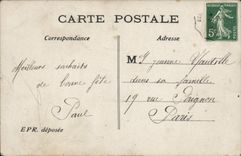 CARTE POSTALE
Correspondance
Adresse
Meilleurs souhaits
de bonne fête
Paul
M
Jeanne
dans sa famille
19 rue
Paris
EPR. déposée